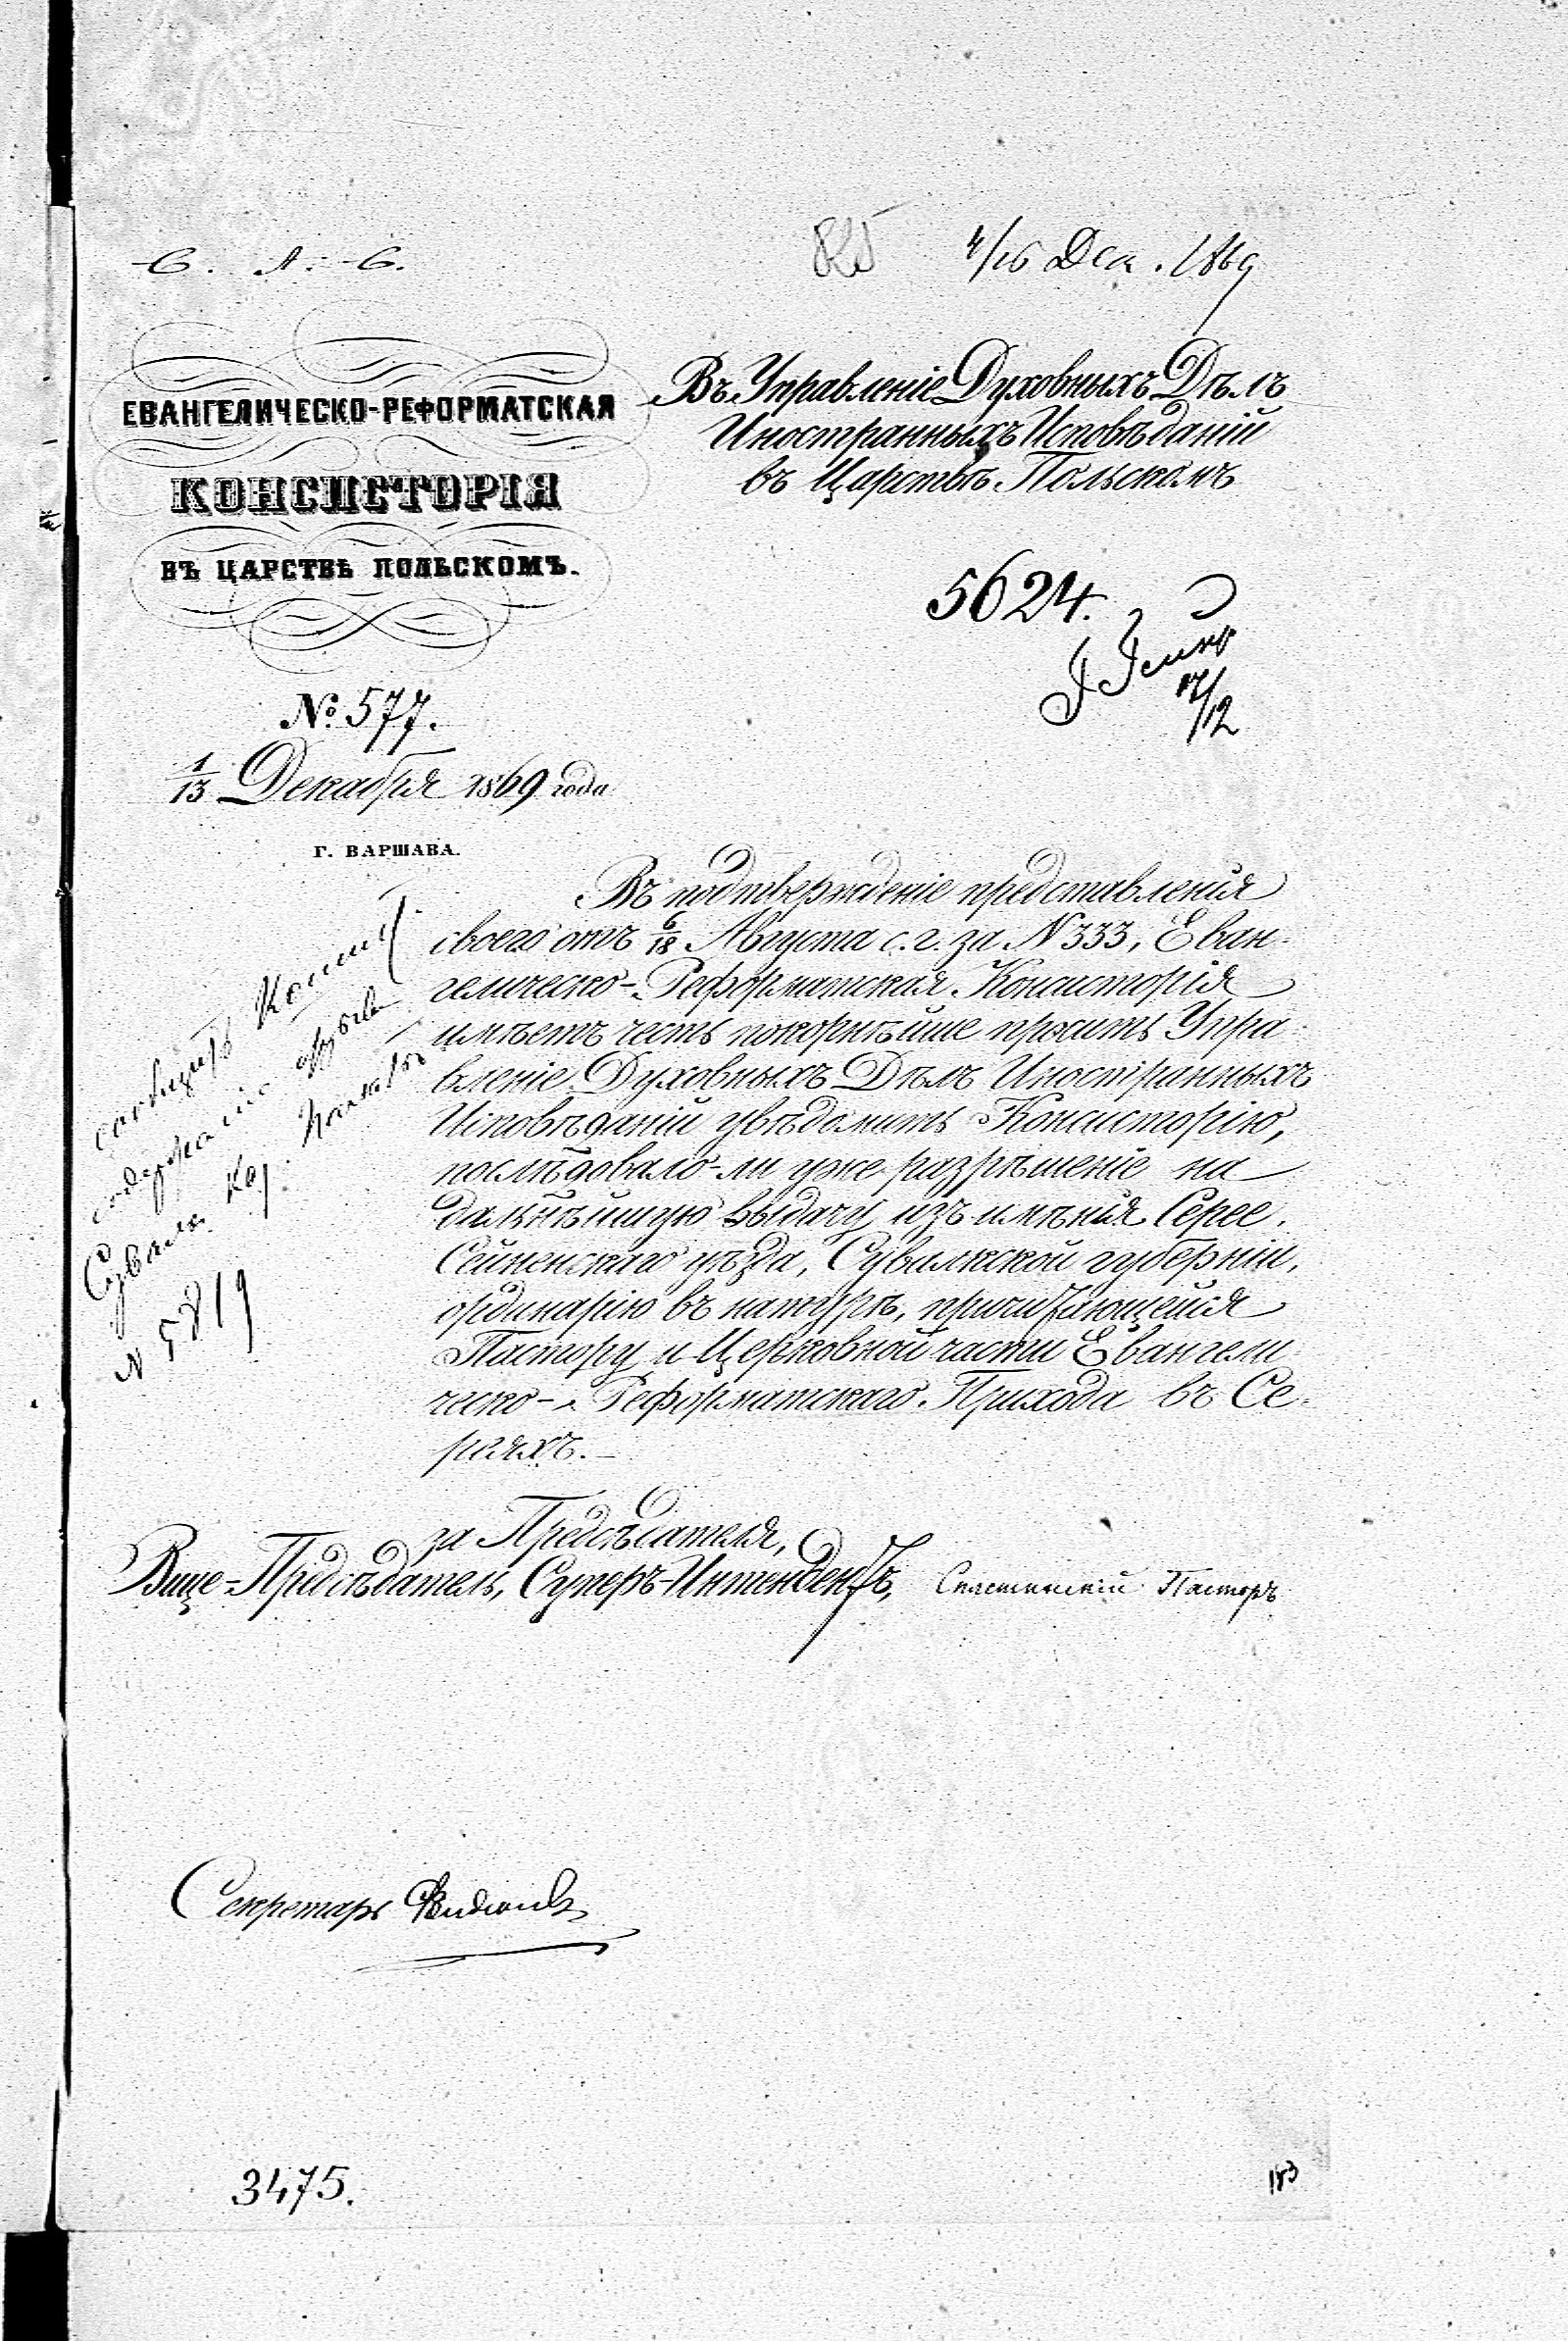 4/16 Дек. 1869
ЕВАНГЕЛИЧЕСКО-РЕФОРМАТСКАЯ
КОНСИСТОРІЯ
ВЪ ЦАРСТВѢ ПОЛЬСКОМЪ.
№ 577.
1/13 Декабря 1869 года
Г. ВАРШАВА.
Въ Управленіе Духовныхъ Дѣлъ
Иностранныхъ Исповѣданій
въ Царствѣ Польскомъ
5624.
17/12
Въ подтвержденіе представленія
своего отъ 6/18 Августа с. г. за N 333, Еван-
гелическо-Реформатская Консисторія
имѣетъ честь покорнѣйше просить Упра-
вленіе Духовныхъ Дѣлъ Иностранныхъ
Исповѣданій увѣдомить Консисторію,
послѣдовало-ли уже разрѣшеніе на
дальнѣйшую выдачу изъ имѣнія Серее,
Сейненскаго уѣзда, Сувалкской губерніи,
ординаріи въ натурѣ, причитающейся
Пастору и Церковной части Евангели-
ческо-Реформатскаго Прихода въ Се-
реяхъ.—
сообщить
содержаніе отзыва
Сувалк. Каз. Палаты
N 5819
за Предсѣдателя,
Вице-Предсѣдатель, Суперъ-Интендентъ, Пасторъ
Секретарь
3475.
183